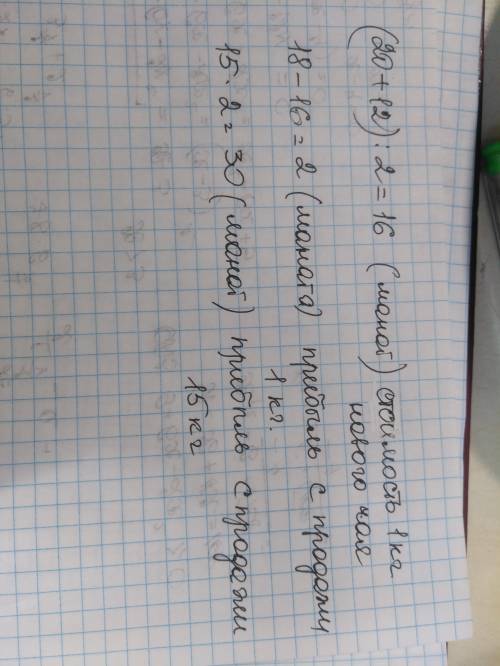 (20+12):2=16 (манат) стоимость 1 кг
нового чая
18-16=2 (маната) прибыль с продажи
1 кг.
15·2=30 (манат) прибыль с продажи
15 кг